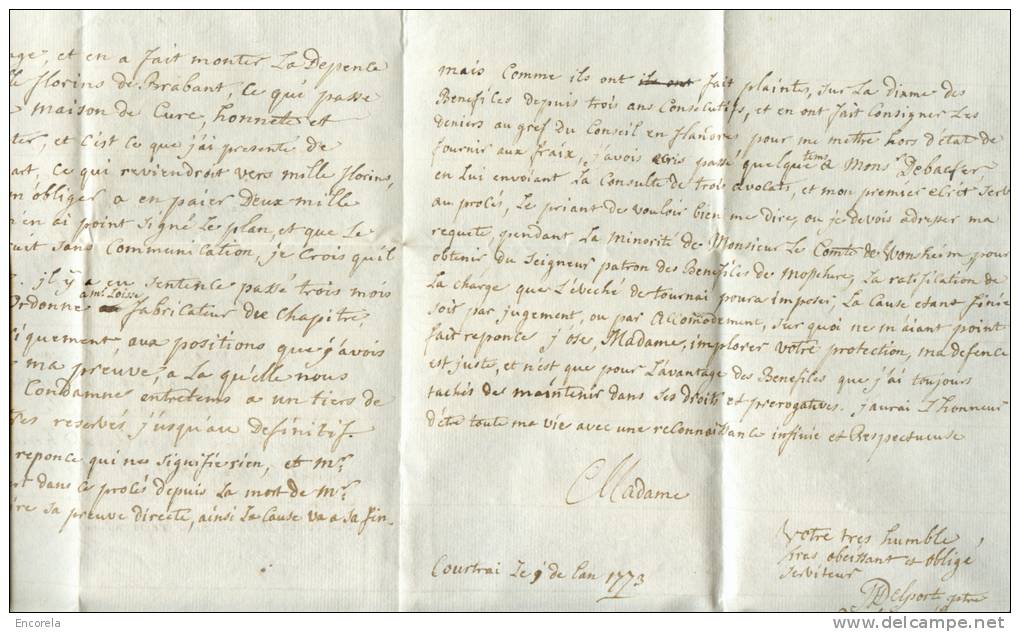 age, et en a fait monter La Depence
lle florins de Brabant, Ce qui passe
maison de Cure, honnete et
ter, et C'est Ce que j'ai presenté de
art, Ce qui reviendroit vers mille florins,
m'obliger a en paier Deux mille
n'en ai point signé Le plan, et que Le
sans Communication, je Crois qu'il
il y a eu sentence passé trois mois
ami Loisse
ordonne fabricateur du Chapitre,
iquement, aux positions que j'avois
ma preuve, a La qu'elle nous
Condamne entretems a un tiers de
res reservés j'usqu'au definitif.
reponce qui ne signifie rien, et Mr.
rt dans Ce procés depuis La mort de Mr.
ire sa preuve directe, ainsi La Cause va a sa fin.
mais Comme ils ont ils ont fait plaintes, sur La dixme des
Benefiles depuis trois ans Consecutifs, et en ont fait Consigner Les
deniers au gref du Conseil en flandre pour me mettre hors d'état de
fournir aux fraix, j'avois ecris passé quelque tems a Monsr Debacker,
en Lui envoiant La Consulte de trois avocats, et mon premier ecrit servi
au procés, Le priant de vouloir bien me dire, ou je devois adresser ma
requete, pendant La minorité de Monsieur Le Comte de pour
obtenir du Seigneur patron des Benefiles de La ratification de
La charge que L'éveché de tournai poura imposer, La Cause etant finie
soit par jugement, ou par accommodement, sur quoi ne m'aiant point
fait reponce j'ose, Madame, implorer votre protection, ma defence
est juste, et n'est que pour L'avantage des Benefiles que j'ai toujours
tachés de maintenir dans ses droits et prerogatives. j'aurai L'honneur
d'éte toute ma vie avec une reconnaissance infinie et Respectueuse
Madame
Votre tres humble,
tres obeissant et oblige
serviteur
Courtrai Le 9 de L'an 1773
Delporte ptre
Encorela
www.delcampe.net